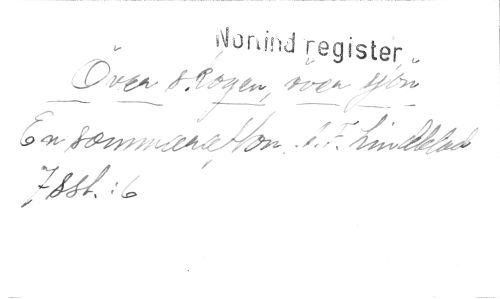 Norlind register
Över skogen, över sjön
En sommarafton. A.F. Lindblad
7 Sst. :6